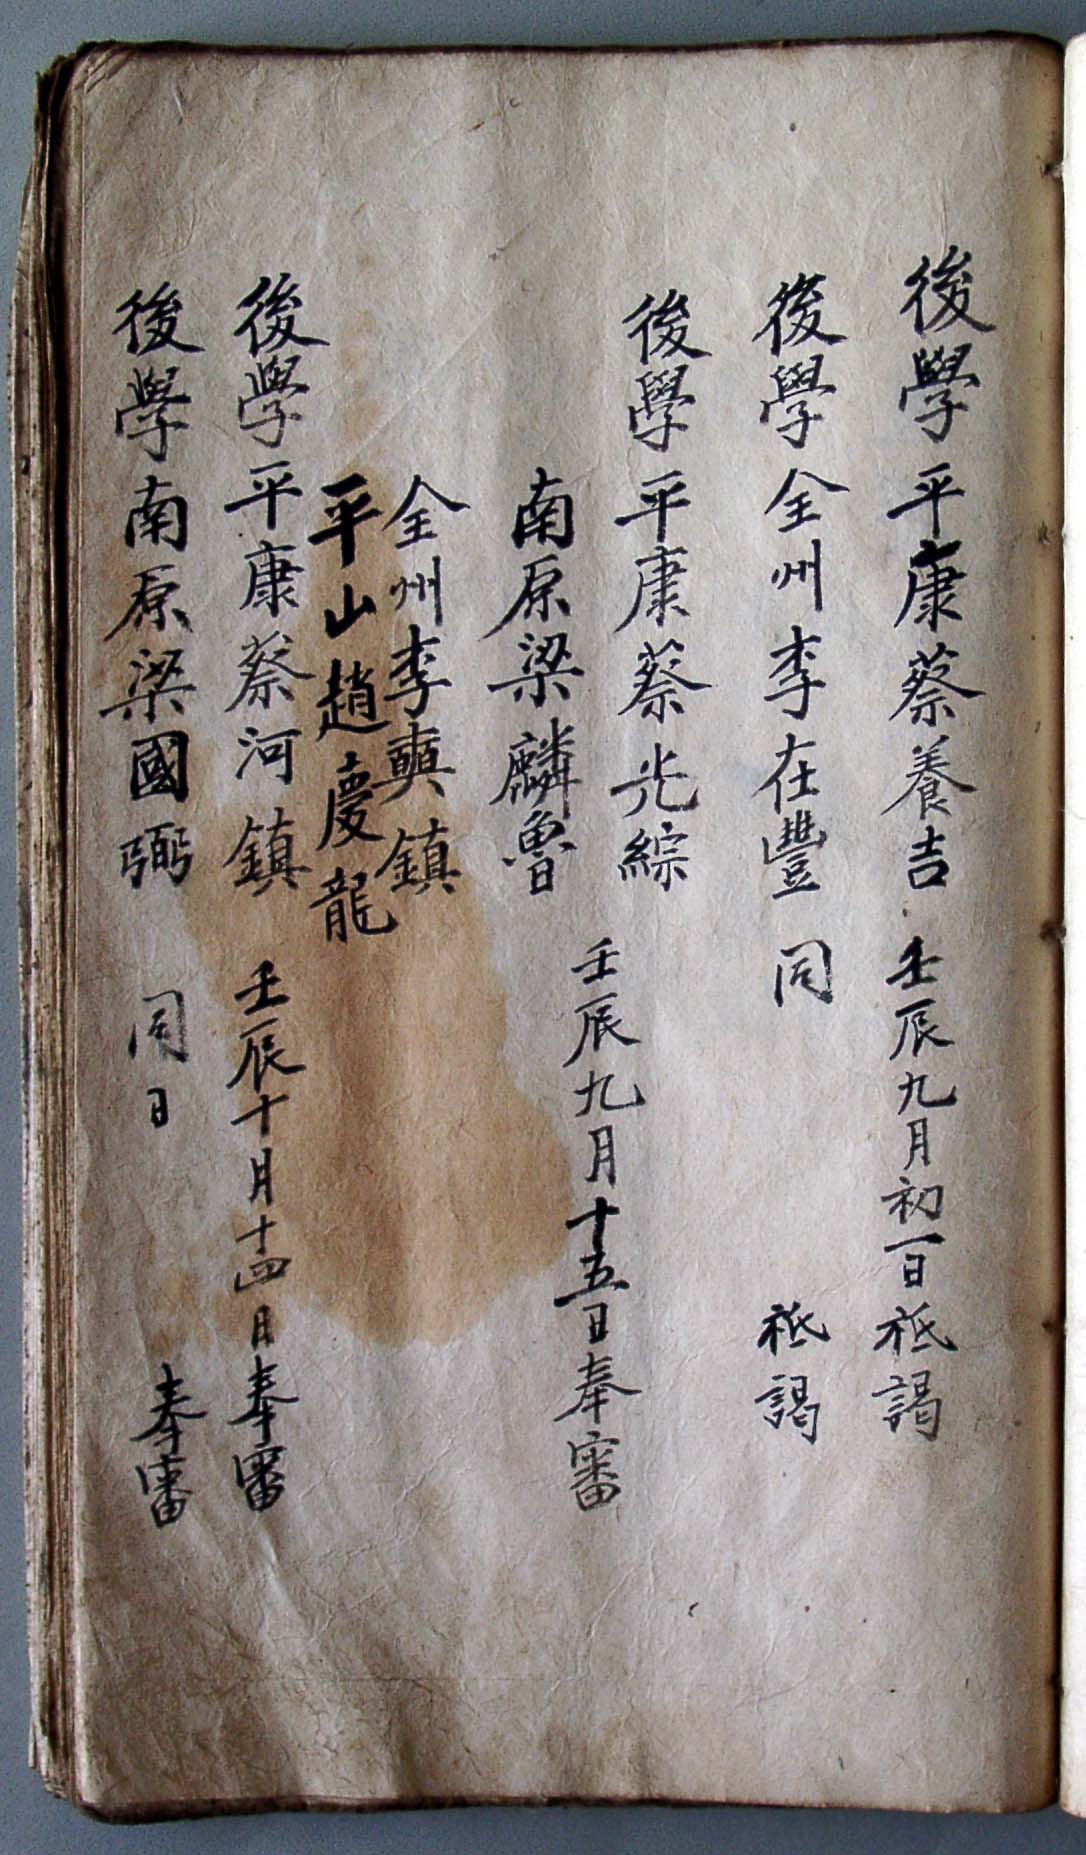 後學平康蔡養吉 壬辰九月初一日祗謁
後學全州李在豐 同 祗謁
後學平康蔡光綜
壬辰九月十五日奉審
南原梁麟魯
全州李奭鎮
平山趙慶龍
後學平康蔡河鎮 壬辰十月十四日奉審
後學南原梁國弼 同日 奉審